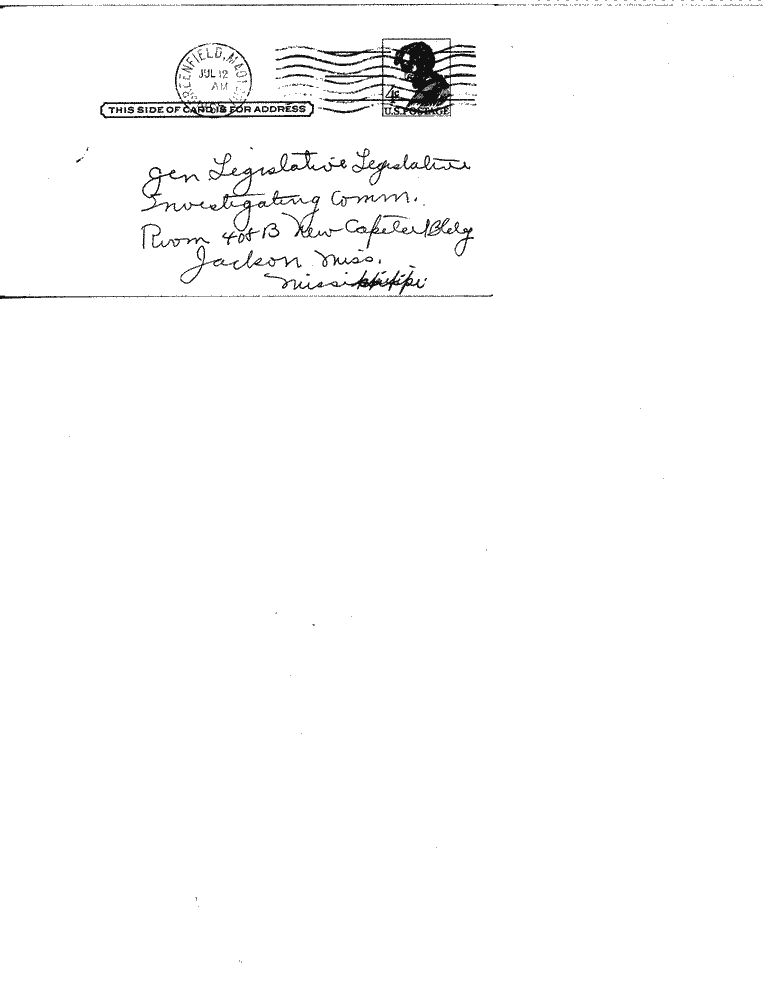 GREENFIELD, MA
JUL 12
AM
4¢
U.S. POSTAGE
THIS SIDE OF CARD IS FOR ADDRESS
Gen Legislative Legislative
Investigating Comm.
Room 408B New Capitol Bldg
Jackson Miss.
Mississippi